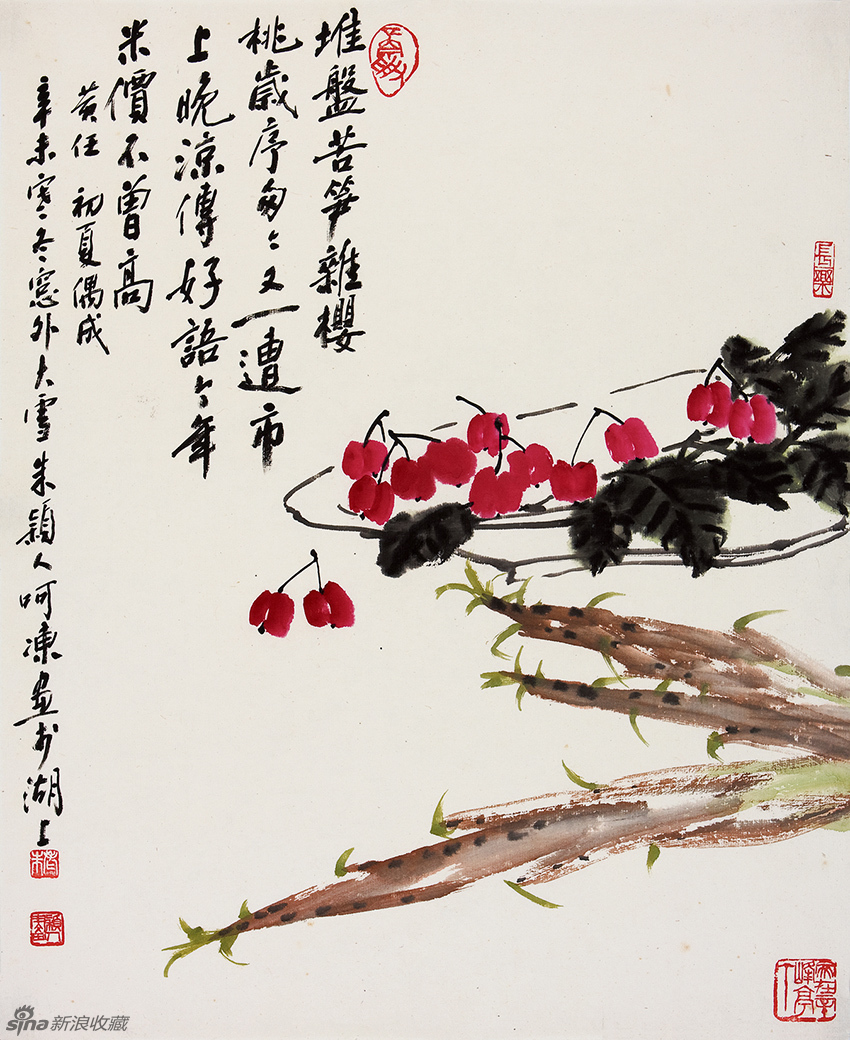 堆盤苦笋雜櫻
桃歲序匆〻又一遭市
上晚涼傳好語今年
米價不曾高
黄任 初夏偶成
辛未寒冬窓外大雪朱穎人呵凍畫於湖上
長樂
sina新浪收藏